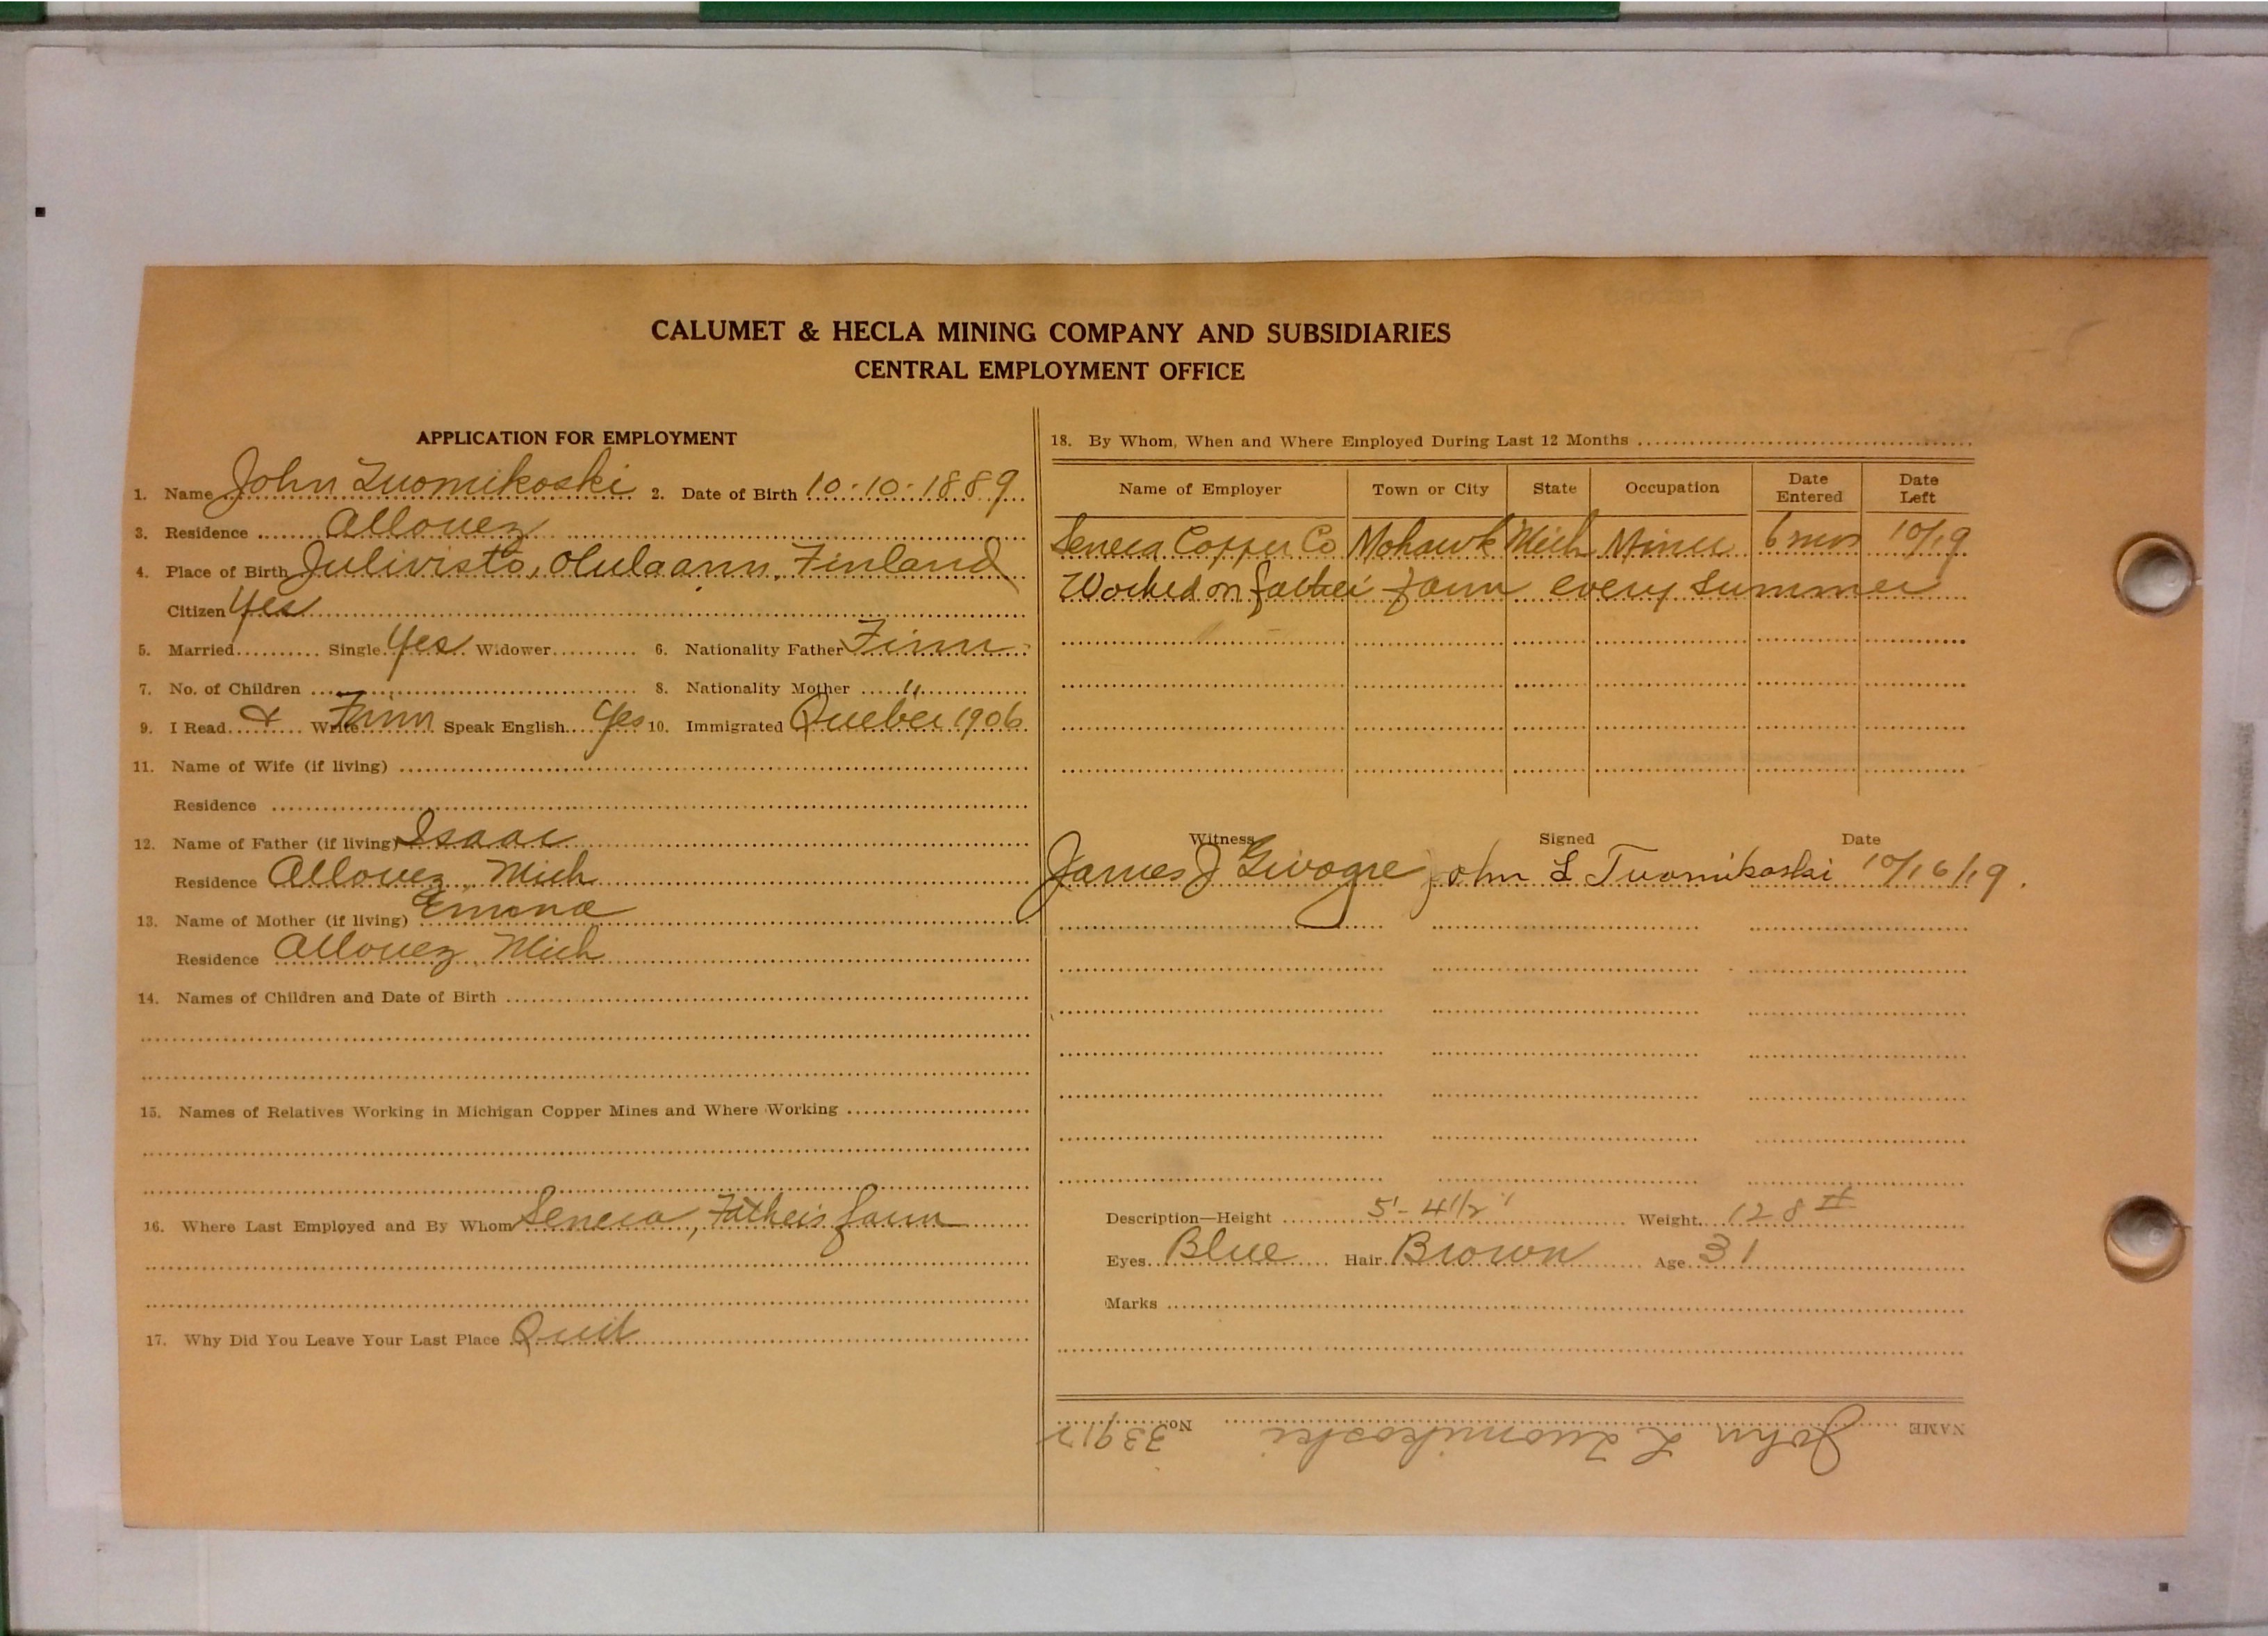 CALUMET & HECLA MINING COMPANY AND SUBSIDIARIES
CENTRAL EMPLOYMENT OFFICE
APPLICATION FOR EMPLOYMENT
1. Name John Tuomikoski 2. Date of Birth 10-10-1889
3. Residence Allouez
4. Place of Birth Julivisto, Olulaann, Finland
Citizen Yes
5. Married Single Yes Widower 6. Nationality Father Finn
7. No. of Children 8. Nationality Mother "
9. I Read & Write Finn Speak English Yes 10. Immigrated Quebec 1906
11. Name of Wife (if living)
Residence
12. Name of Father (if living) Isaac
Residence Allouez, Mich
13. Name of Mother (if living)
Residence Allouez, Mich
14. Names of Children and Date of Birth
15. Names of Relatives Working in Michigan Copper Mines and Where Working
16. Where Last Employed and By Whom Seneca, Father's farm
17. Why Did You Leave Your Last Place Quit
18. By Whom, When and Where Employed During Last 12 Months
Name of Employer Town or City State Occupation Date Entered Date Left
Seneca Copper Co Mohawk Mich Miner 6 mos 10/19
Worked on father farm every summer
Witness Signed Date
James J John L Tuomikoski 10/16/19.
Description—Height 5'-4 1/2" Weight 128 #
Eyes Blue Hair Brown Age 31
Marks
NAME John L Tuomikoski No. 33912